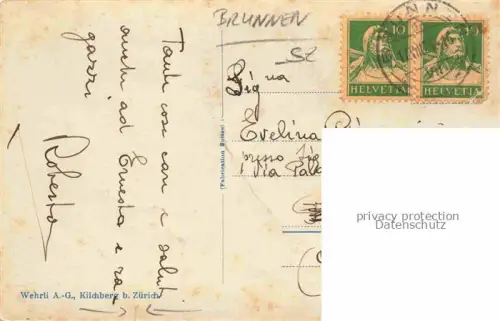 BRUNNEN
SZ
10
HELVETIA
10
HELVETIA
Tante cose care e saluti
anche ad Ernesta e ra=
gazzi
Roberta
(Fabrication Suisse)
Sig.na
Evelina
presso Sig
Via
privacy protection
Datenschutz
Wehrli A.-G., Kilchberg b. Zürich